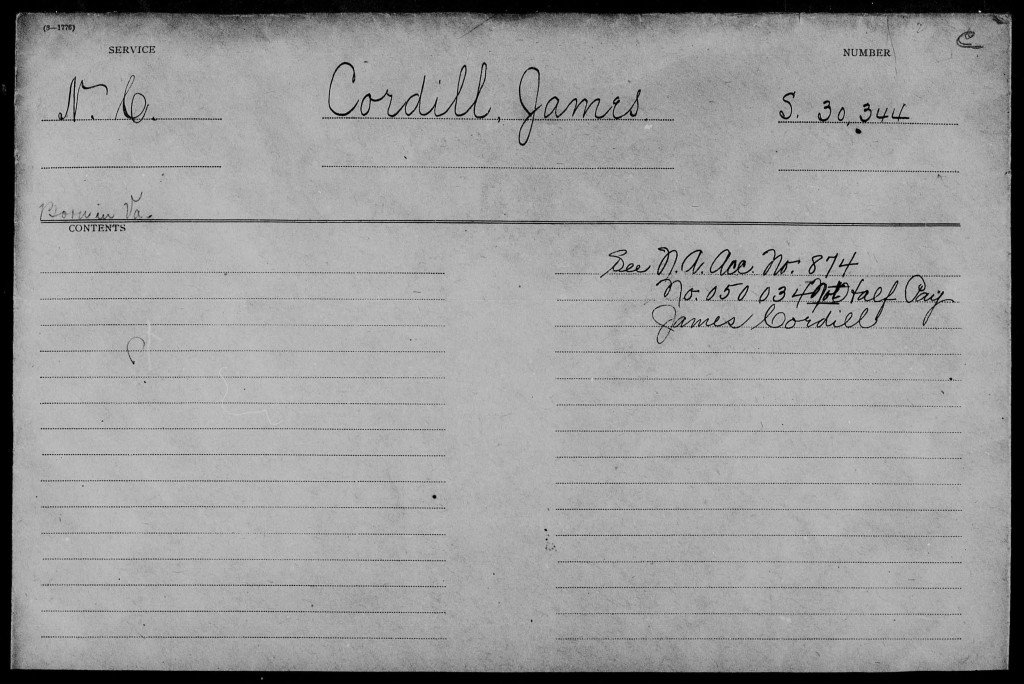 (3—1776)
C
SERVICE
NUMBER
N. C.
Cordill, James.
S. 30,344
Born in Va.
CONTENTS
See N.A. Acc. No. 874
No. 050 034 Not Half Pay
James Cordill